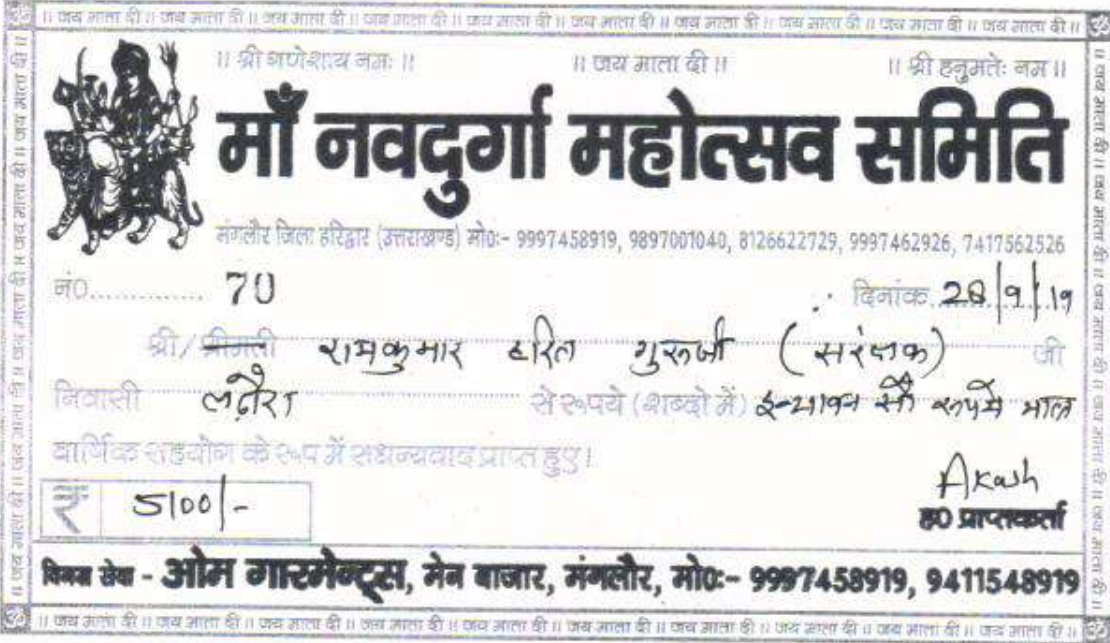 ॥ जय माता दी ॥ जय माता दी ॥ जय माता दी ॥ जय माता दी ॥ जय माता दी ॥ जय माता दी ॥ जय माता दी ॥ जय माता दी ॥ जय माता दी ॥
॥ श्री गणेशाय नमः ॥ ॥ जय माता दी ॥ ॥ श्री हनुमतेः नम ॥
माँ नवदुर्गा महोत्सव समिति
मंगलौर जिला हरिद्वार (उत्तराखण्ड) मो०:- 9997458919, 9897001040, 8126622729, 9997462926, 7417562526
नं०.............. 70 दिनांक 28/9/19
श्री/श्रीमती रामकुमार हरित गुरूजी (सरंक्षक) जी
निवासी लढौरा से रूपये (शब्दो में) इक्यावन सौ रूपये मात्र
वार्षिक सहयोग के रूप में सधन्यवाद प्राप्त हुए।
₹ 5100/- Akash
ह० प्राप्तकर्ता
विनम्र सेवा - ओम गारमेन्ट्स, मेन बाजार, मंगलौर, मो०:- 9997458919, 9411548919
॥ जय माता दी ॥ जय माता दी ॥ जय माता दी ॥ जय माता दी ॥ जय माता दी ॥ जय माता दी ॥ जय माता दी ॥ जय माता दी ॥ जय माता दी ॥